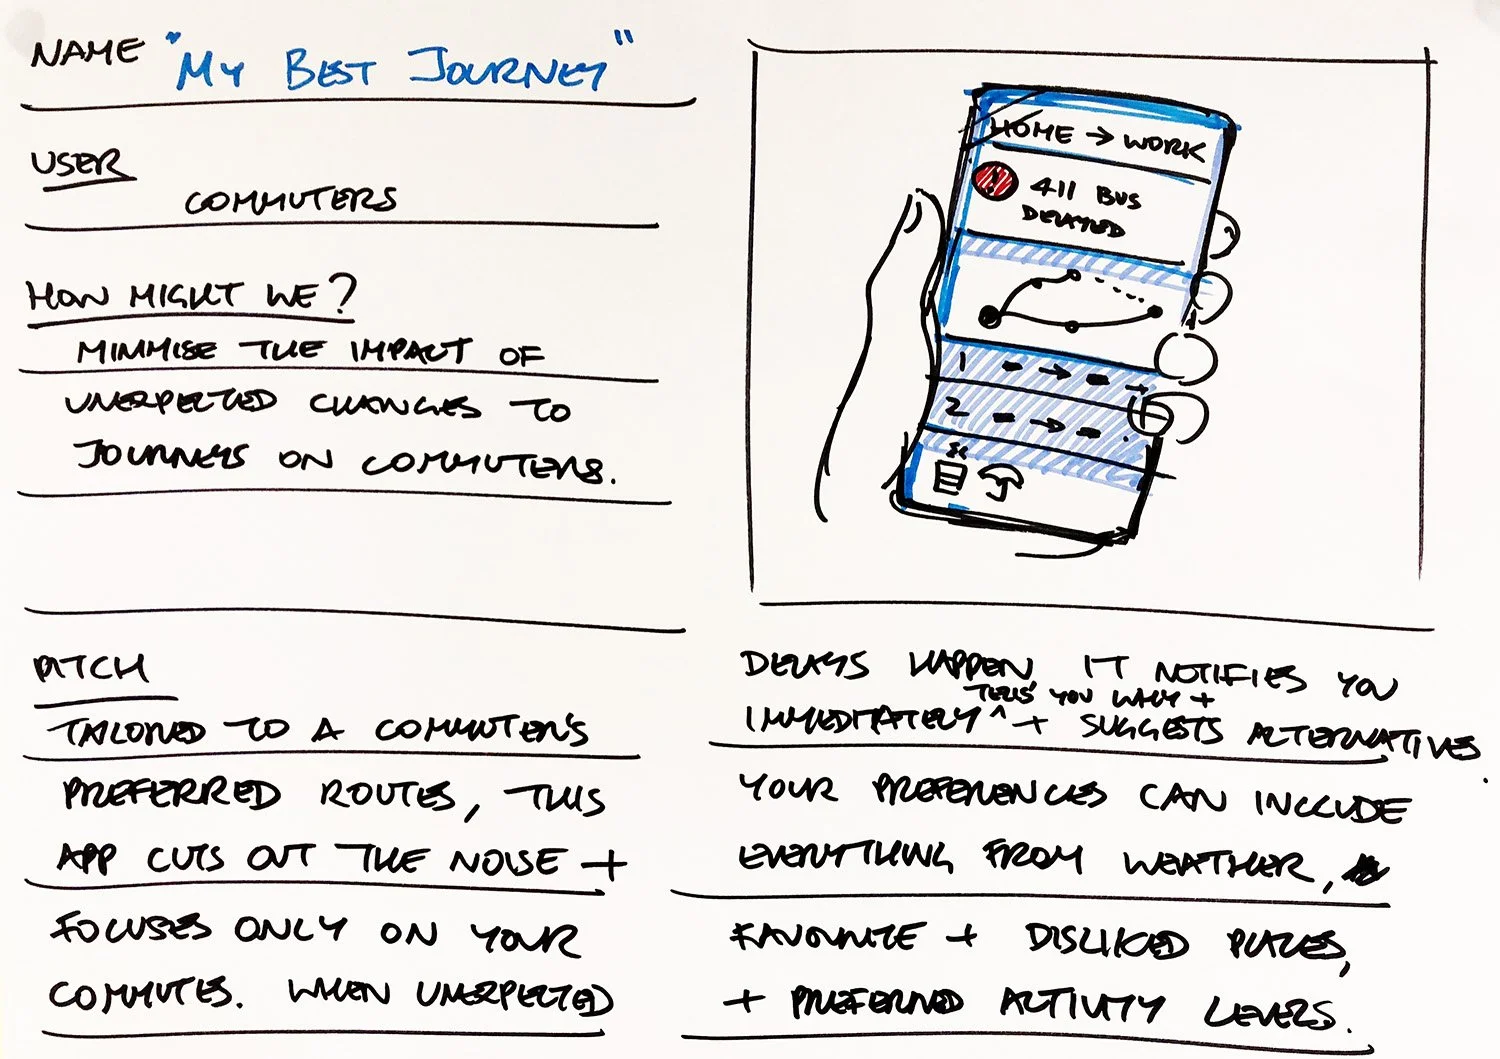 NAME "MY BEST JOURNEY"
USER
COMMUTERS
HOW MIGHT WE?
MINIMISE THE IMPACT OF
UNEXPECTED CHANGES TO
JOURNEYS ON COMMUTERS.
HOME → WORK
! 411 BUS
DELAYED
1
2
PITCH
TAILORED TO A COMMUTER'S
PREFERRED ROUTES, THIS
APP CUTS OUT THE NOISE +
FOCUSES ONLY ON YOUR
COMMUTES. WHEN UNEXPECTED
DELAYS HAPPEN IT NOTIFIES YOU
TELLS YOU WHY +
IMMEDIATELY ^ + SUGGESTS ALTERNATIVES.
YOUR PREFERENCES CAN INCLUDE
EVERYTHING FROM WEATHER,
FAVOURITE + DISLIKED PLACES,
+ PREFERRED ACTIVITY LEVELS.